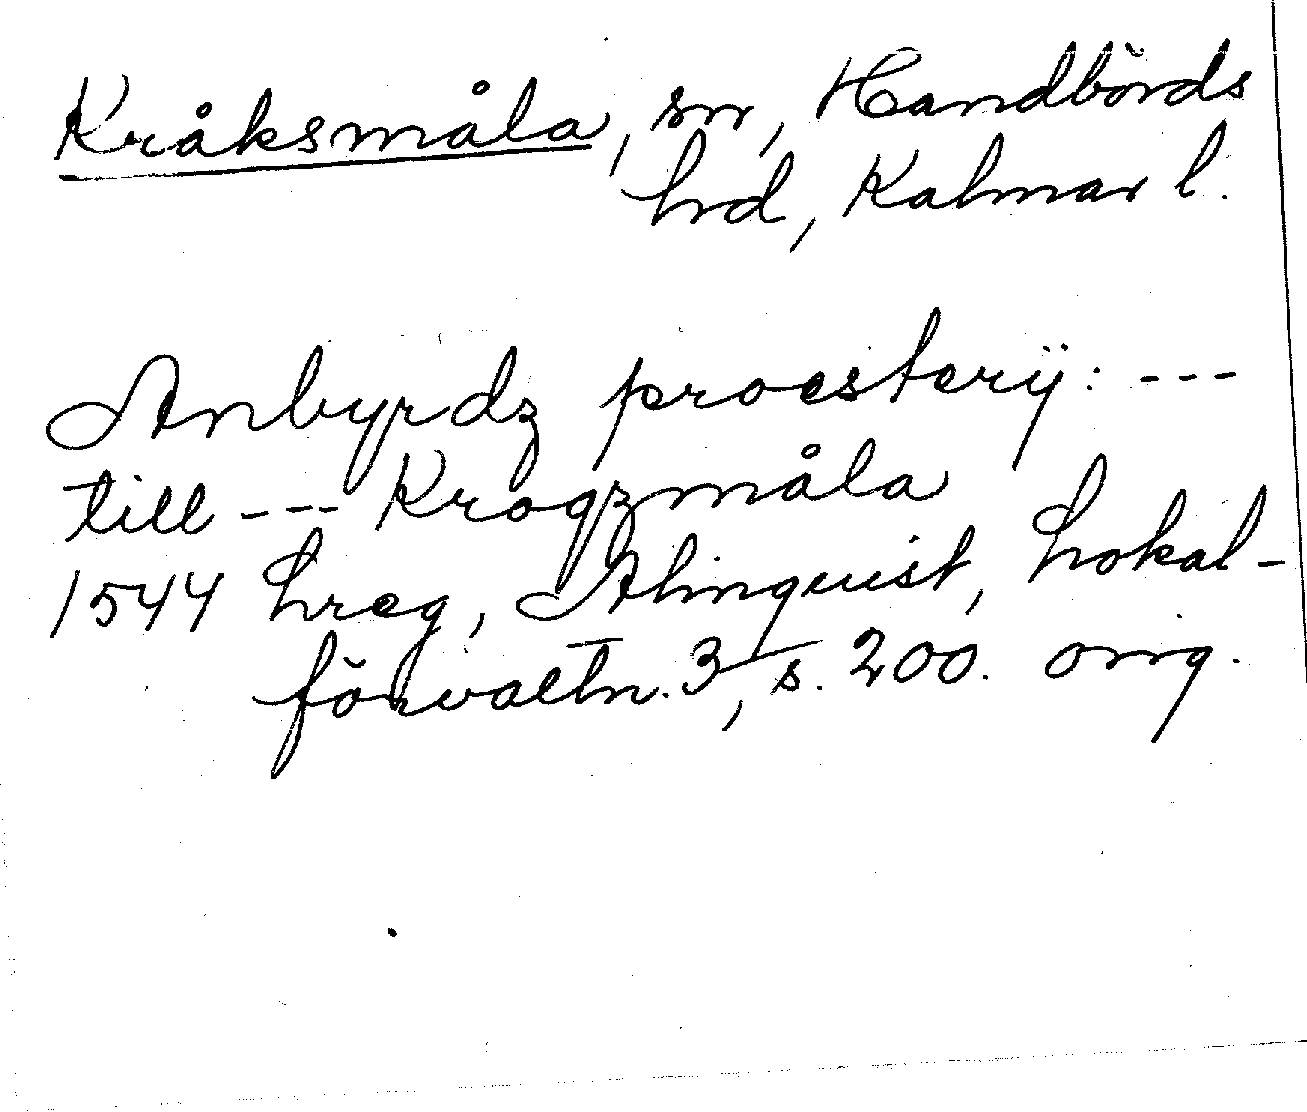 Kråksmåla, sn, Handbörds
hrd, Kalmar l.
Anbyrdz proesterij: ---
till --- Krogzmåla
1544 Lreg, Almquist, Lokal-
förvaltn. 3, s. 200. orig.